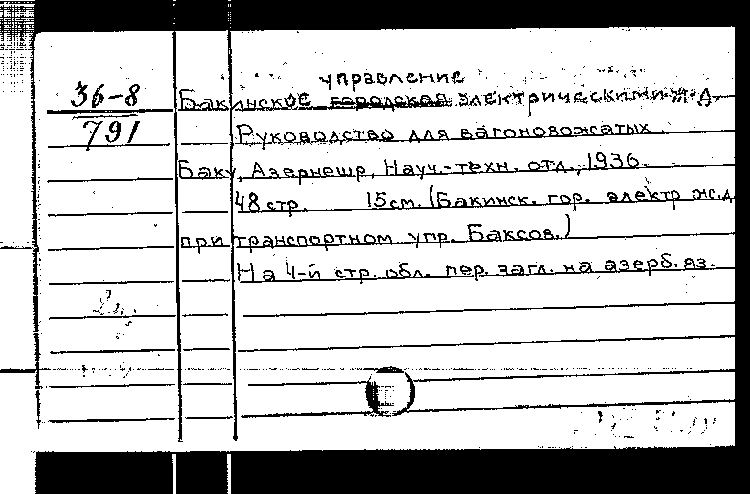 управление
36-8 Бакинское городское электрическими ж.д.
791 Руководство для вагоновожатых.
Баку, Азернешр, Науч.-техн. отд., 1936.
48 стр. 15 см. (Бакинск. гор. электр ж.д
при транспортном упр. Баксов.)
На 4-й стр. обл. пер. загл. на азерб. яз.